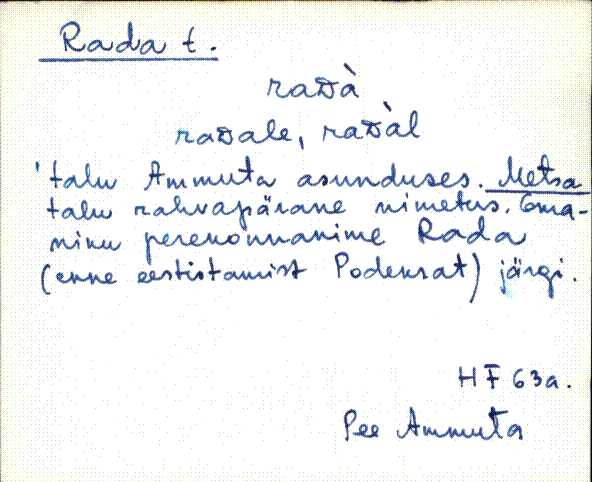 Rada t.
raᴅà
raᴅale, raᴅàl
'talu Ammuta asunduses. Metsa
talu rahvapärane nimetus. Oma-
niku perekonnanime Rada
(enne eestistamist Podeksat) järgi.
HF 63a.
Pee Ammuta